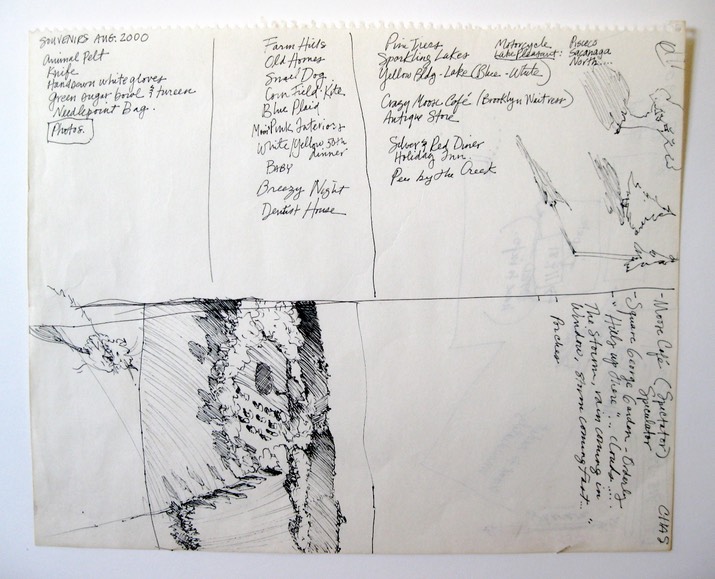 SOUVENIRS AUG. 2000
Animal Pelt
Knife
Handsewn white gloves
Green sugar bowl & tureen
Needlepoint Bag.
Photos.
Farm Hills
Old Homes
Small Dog
Corn Field - Kite
Blue Plaid
Pink Interiors
White/Yellow 50th dinner
BABY
Breezy Night
Dentist House
Pine Trees
Sparkling Lakes
Yellow Bldg - Lake (Blue-White)
Crazy Moose Café (Brooklyn Waitress)
Antique Store
Silver & Red Diner
Holiday Inn
Pees by the Creek
Motorcycle
Lake Pleasant:
Sacanaga
North....
- Moose Café (Spectator)
Speculator
- Square George Garden - Orderly
"Hills up there"... clouds....
The storm, rain coming in
Window, storm coming fast... "
Porches